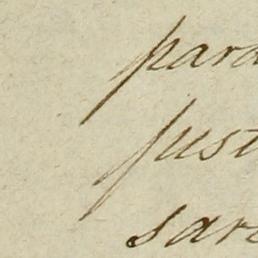 para
just
sare